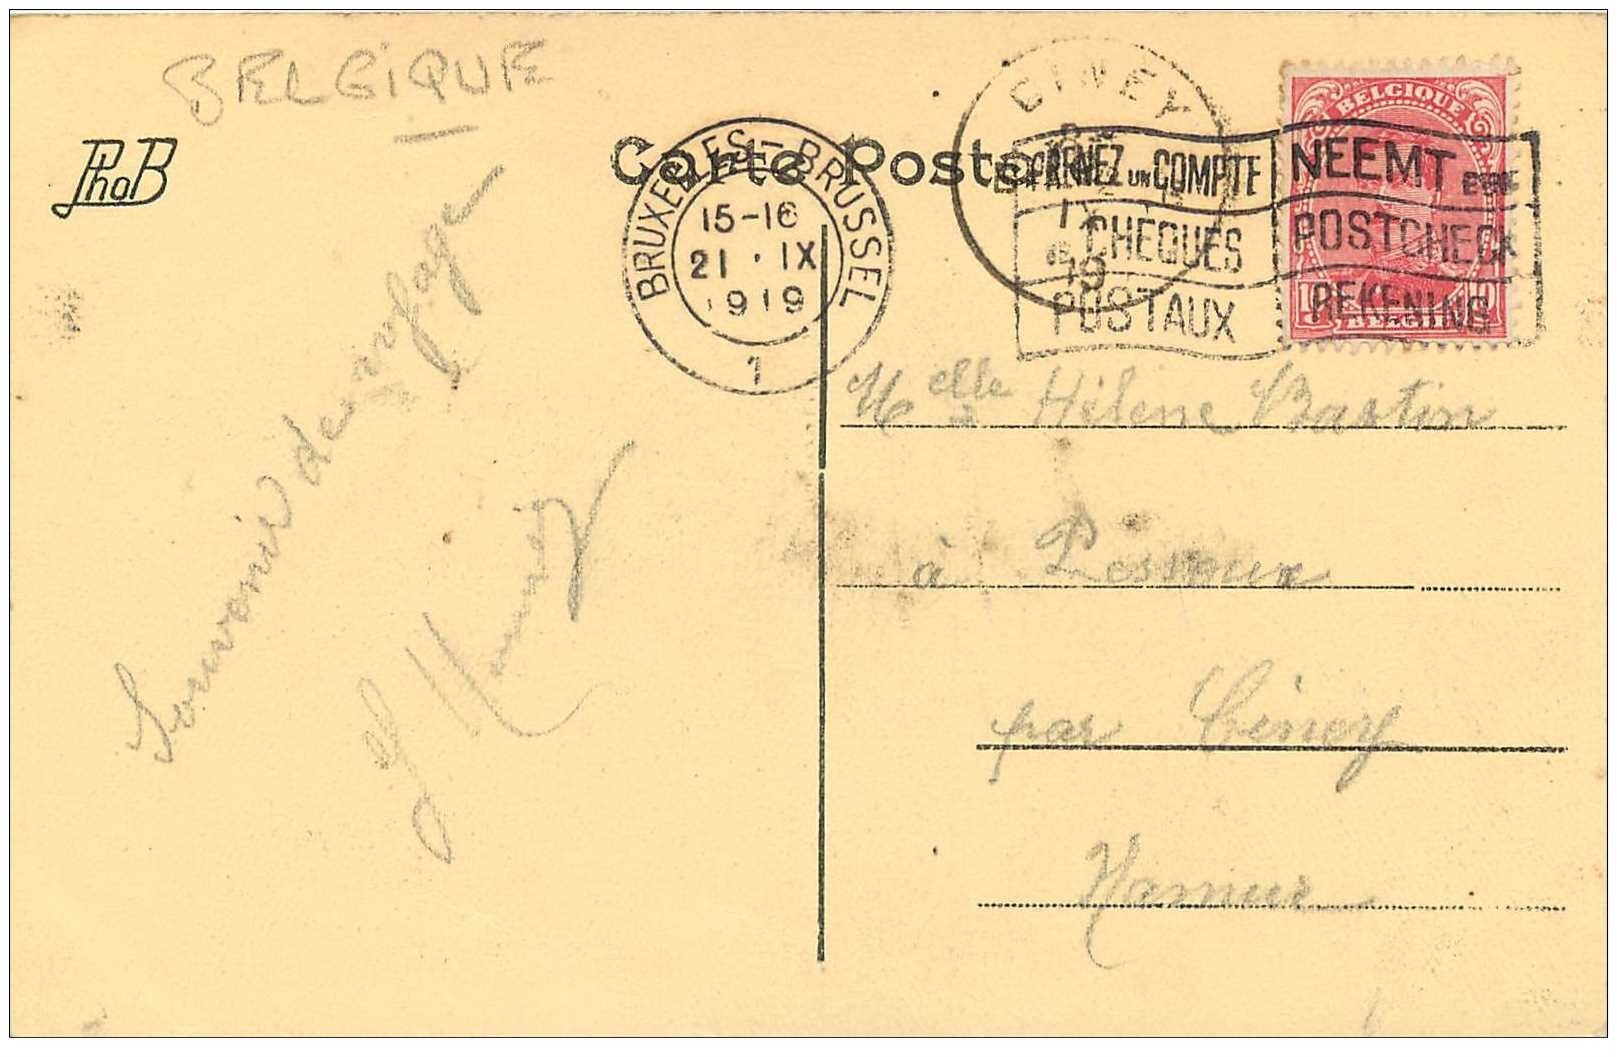 BELGIQUE
PhoB
Carte Postale
BRUXELLES-BRUSSEL
15-16
21 · IX
1919
1
CINEY
IX
19
PRENEZ UN COMPTE
DE CHEQUES
POSTAUX
NEEMT EENE
POSTCHECK
REKENING
BELGIQUE
BELGIË
Souvenir de voyage
Melle Hélène Bastin
à Pessoux
par Ciney
Namur